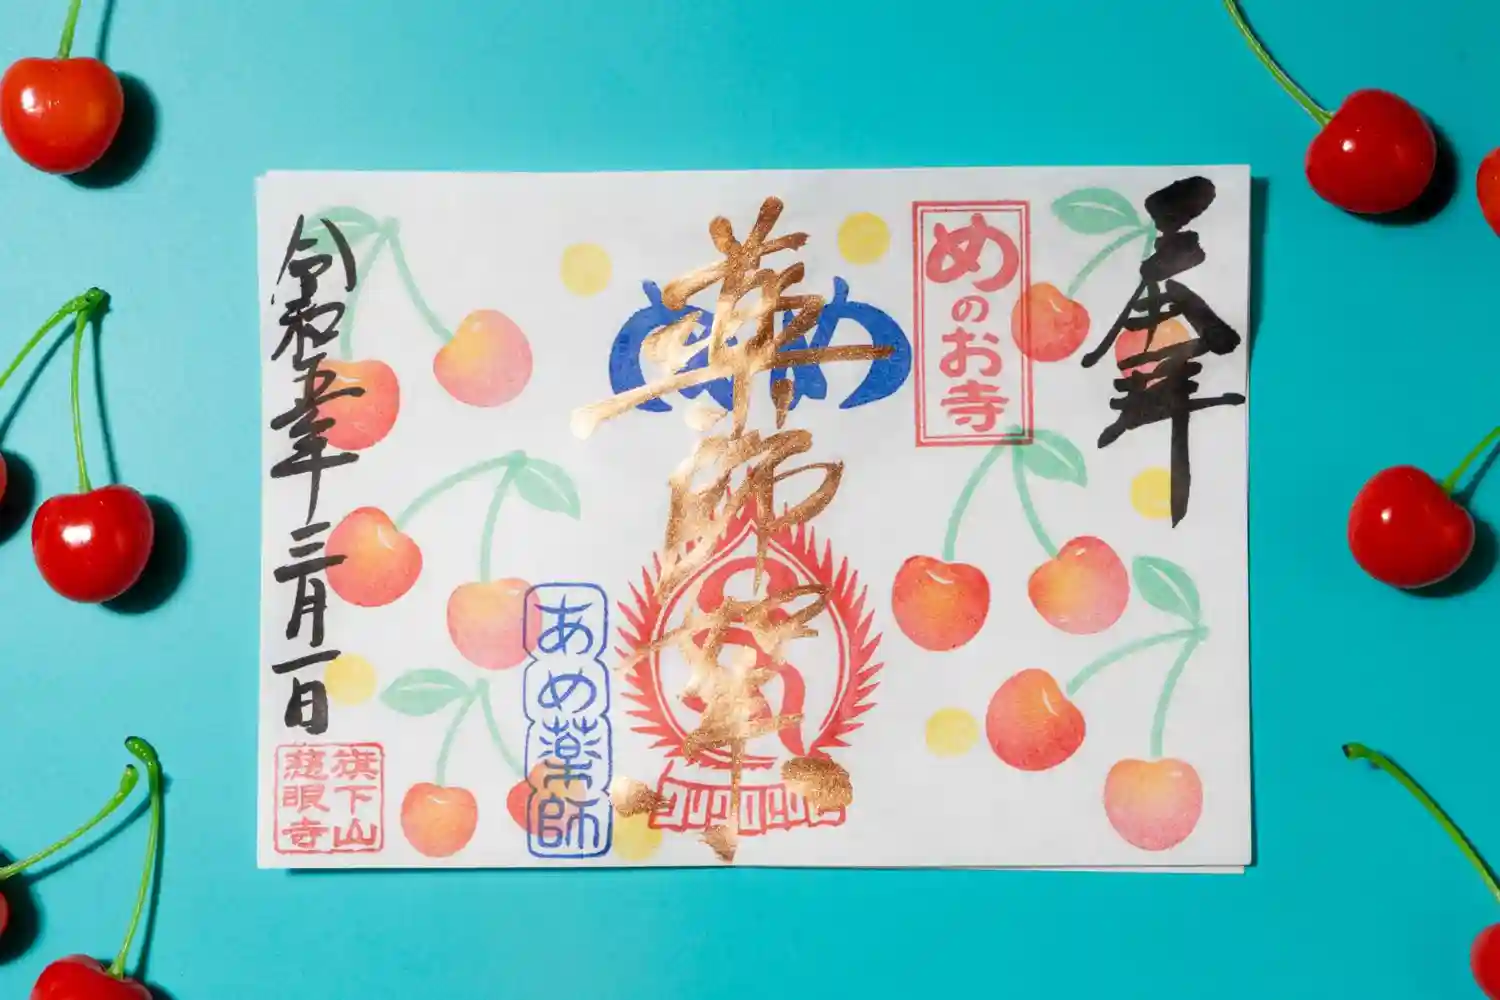 奉拝
めのお寺
薬師如来
あめ薬師
令和五年三月一日
旗下山
慈眼寺